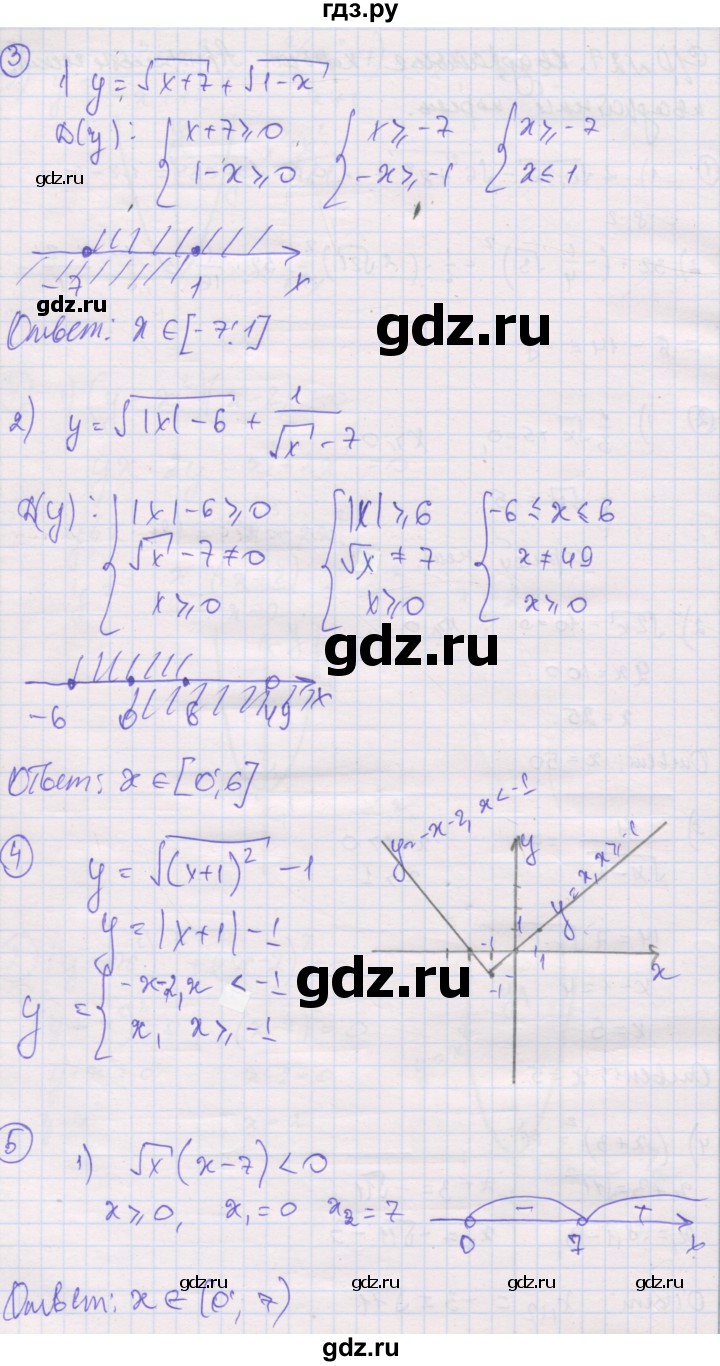 гдз.ру
③
1) y = √(x+7) + √(1-x)
D(y): { x+7 ⩾ 0 { x ⩾ -7 { x ⩾ -7
1-x ⩾ 0 -x ⩾ -1 x ⩽ 1
gdz.ru
-7 1 x
gdz.ru
Ответ: x ∈ [-7; 1]
gdz.ru
2) y = √(|x|-6) + 1/(√x - 7)
D(y): { |x|-6 ⩾ 0 { |x| ⩾ 6 { -6 ⩽ x ⩽ 6
√x - 7 ≠ 0 √x ≠ 7 x ≠ 49
x ⩾ 0 x ⩾ 0 x ⩾ 0
gdz.ru
-6 0 6 49 x
Ответ: x ∈ [0; 6]
④ y = √((x+1)²) - 1
y = |x+1| - 1
y = { -x-2, x < -1
x, x ⩾ -1
y = -x-2, x < -1
y
y = x, x ⩾ -1
-1 1 1 -1 x
gdz.ru
⑤ 1) √x (x-7) < 0
x ⩾ 0, x₁ = 0 x₂ = 7
- +
0 7 x
gdz.ru gdz.ru gdz.ru gdz.ru
Ответ: x ∈ (0; 7)
gdz.ru